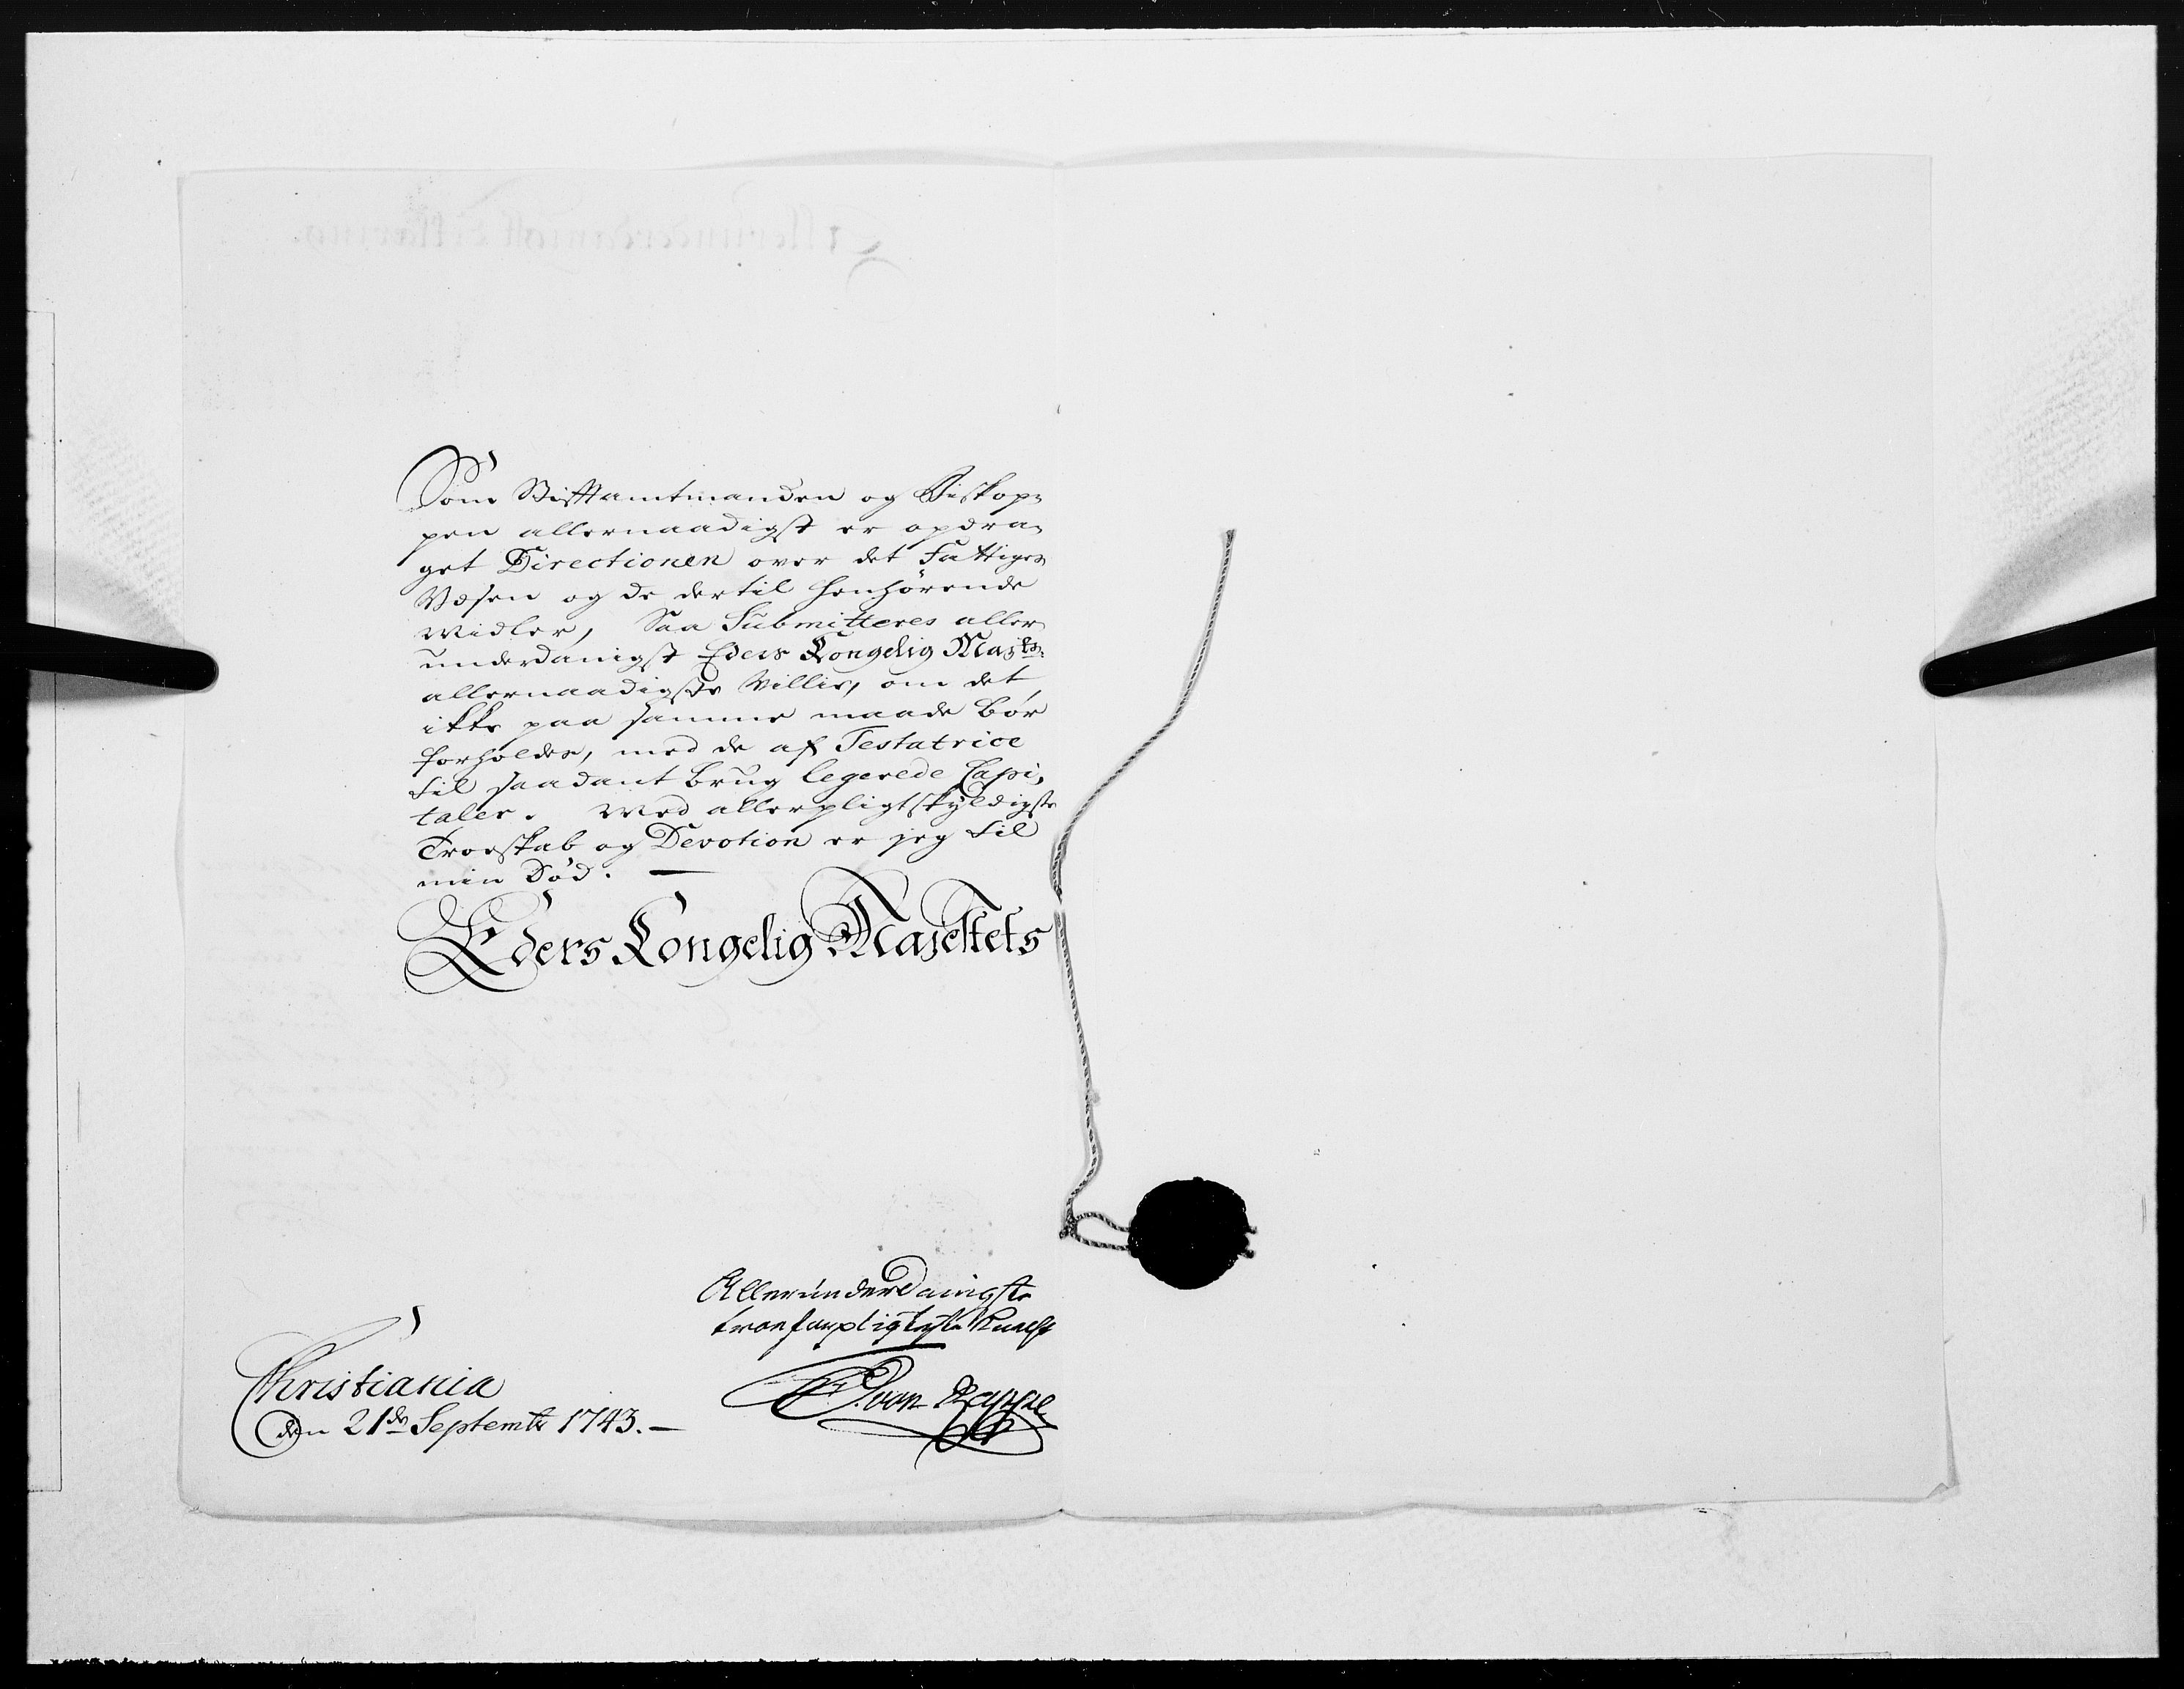 Som Stiftamtmanden og Biskop-
pen allernaadigst er opdra-
get Directionen over det Fattiges
Væsen og de dertil henhørende
Midler, Saa Submitteres aller-
underdanigst Eders Kongelig Majts.
allernaadigste Villie, om det
ikke paa samme maade bør
forholdes, med de af Testatrice
til saadant brug legerede Capi-
taler. Med allerpligtskyldigste
Troeskab og Devotion er jeg til
min Død. —
Eders Kongelig Majestets
Allerunderdanigste
troepligtigste Knecht
von Rappe
Christiania
den 21de Septembr 1743. —